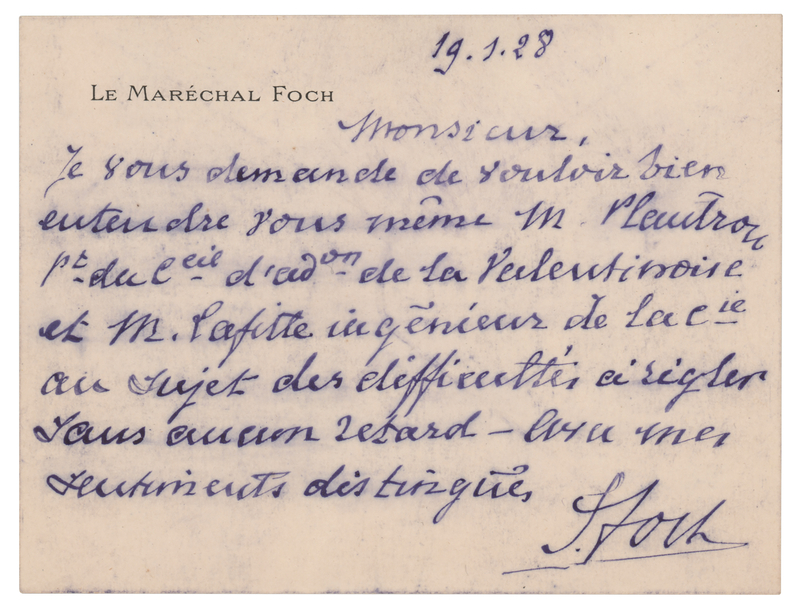 19.1.28
LE MARÉCHAL FOCH
Monsieur,
Je vous demande de vouloir bien
entendre vous même M. Plantrou
Pt du Ceeil d'adon de la Valentinoise
et M. Lafitte ingénieur de la Cie
au sujet des difficultés à régler
sans aucun retard – Avec mes
sentiments distingués
F. Foch